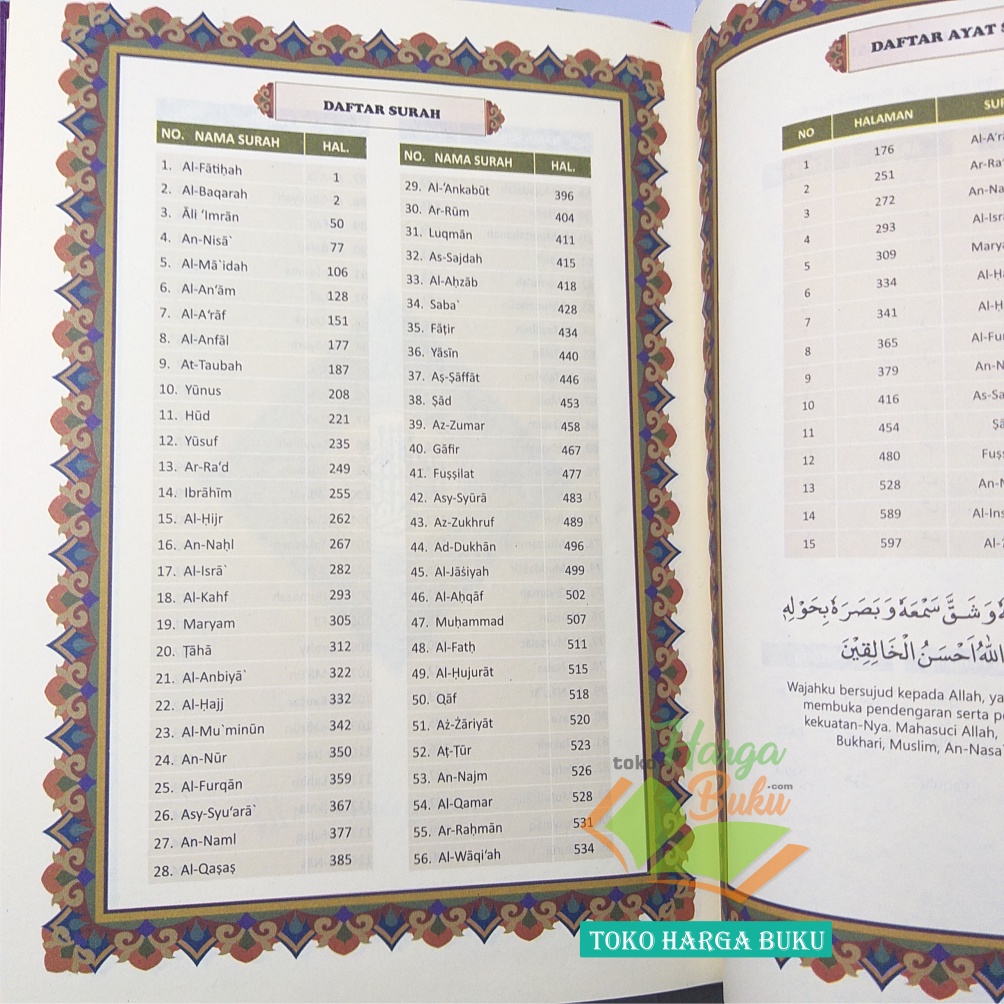 DAFTAR SURAH
NO. NAMA SURAH HAL.
1. Al-Fātiḥah 1
2. Al-Baqarah 2
3. Āli ‘Imrān 50
4. An-Nisā` 77
5. Al-Mā`idah 106
6. Al-An‘ām 128
7. Al-A‘rāf 151
8. Al-Anfāl 177
9. At-Taubah 187
10. Yūnus 208
11. Hūd 221
12. Yūsuf 235
13. Ar-Ra‘d 249
14. Ibrāhīm 255
15. Al-Ḥijr 262
16. An-Naḥl 267
17. Al-Isrā` 282
18. Al-Kahf 293
19. Maryam 305
20. Ṭāhā 312
21. Al-Anbiyā` 322
22. Al-Ḥajj 332
23. Al-Mu`minūn 342
24. An-Nūr 350
25. Al-Furqān 359
26. Asy-Syu‘arā` 367
27. An-Naml 377
28. Al-Qaṣaṣ 385
NO. NAMA SURAH HAL.
29. Al-‘Ankabūt 396
30. Ar-Rūm 404
31. Luqmān 411
32. As-Sajdah 415
33. Al-Aḥzāb 418
34. Saba` 428
35. Fāṭir 434
36. Yāsīn 440
37. Aṣ-Ṣāffāt 446
38. Ṣād 453
39. Az-Zumar 458
40. Gāfir 467
41. Fuṣṣilat 477
42. Asy-Syūrā 483
43. Az-Zukhruf 489
44. Ad-Dukhān 496
45. Al-Jāṡiyah 499
46. Al-Aḥqāf 502
47. Muḥammad 507
48. Al-Fatḥ 511
49. Al-Ḥujurāt 515
50. Qāf 518
51. Aż-Żāriyāt 520
52. Aṭ-Ṭūr 523
53. An-Najm 526
54. Al-Qamar 528
55. Ar-Raḥmān 531
56. Al-Wāqi‘ah 534
DAFTAR AYAT
NO HALAMAN
1 176 Al-A‘r
2 251 Ar-Ra‘
3 272 An-Na
4 293 Al-Isr
5 309 Mary
6 334 Al-Ḥ
7 341 Al-Ḥ
8 365 Al-Fu
9 379 An-N
10 416 As-Sa
11 454 Ṣā
12 480 Fuṣṣ
13 528 An-N
14 589 Al-Ins
15 597 Al-
وَشَقَّ سَمْعَهٗ وَبَصَرَهٗ بِحَوْلِهٖ
اللّٰهُ اَحْسَنُ الْخَالِقِيْنَ
Wajahku bersujud kepada Allah, ya
membuka pendengaran serta pe
kekuatan-Nya. Mahasuci Allah,
Bukhari, Muslim, An-Nasa`
toko Harga
Buku .com
TOKO HARGA BUKU